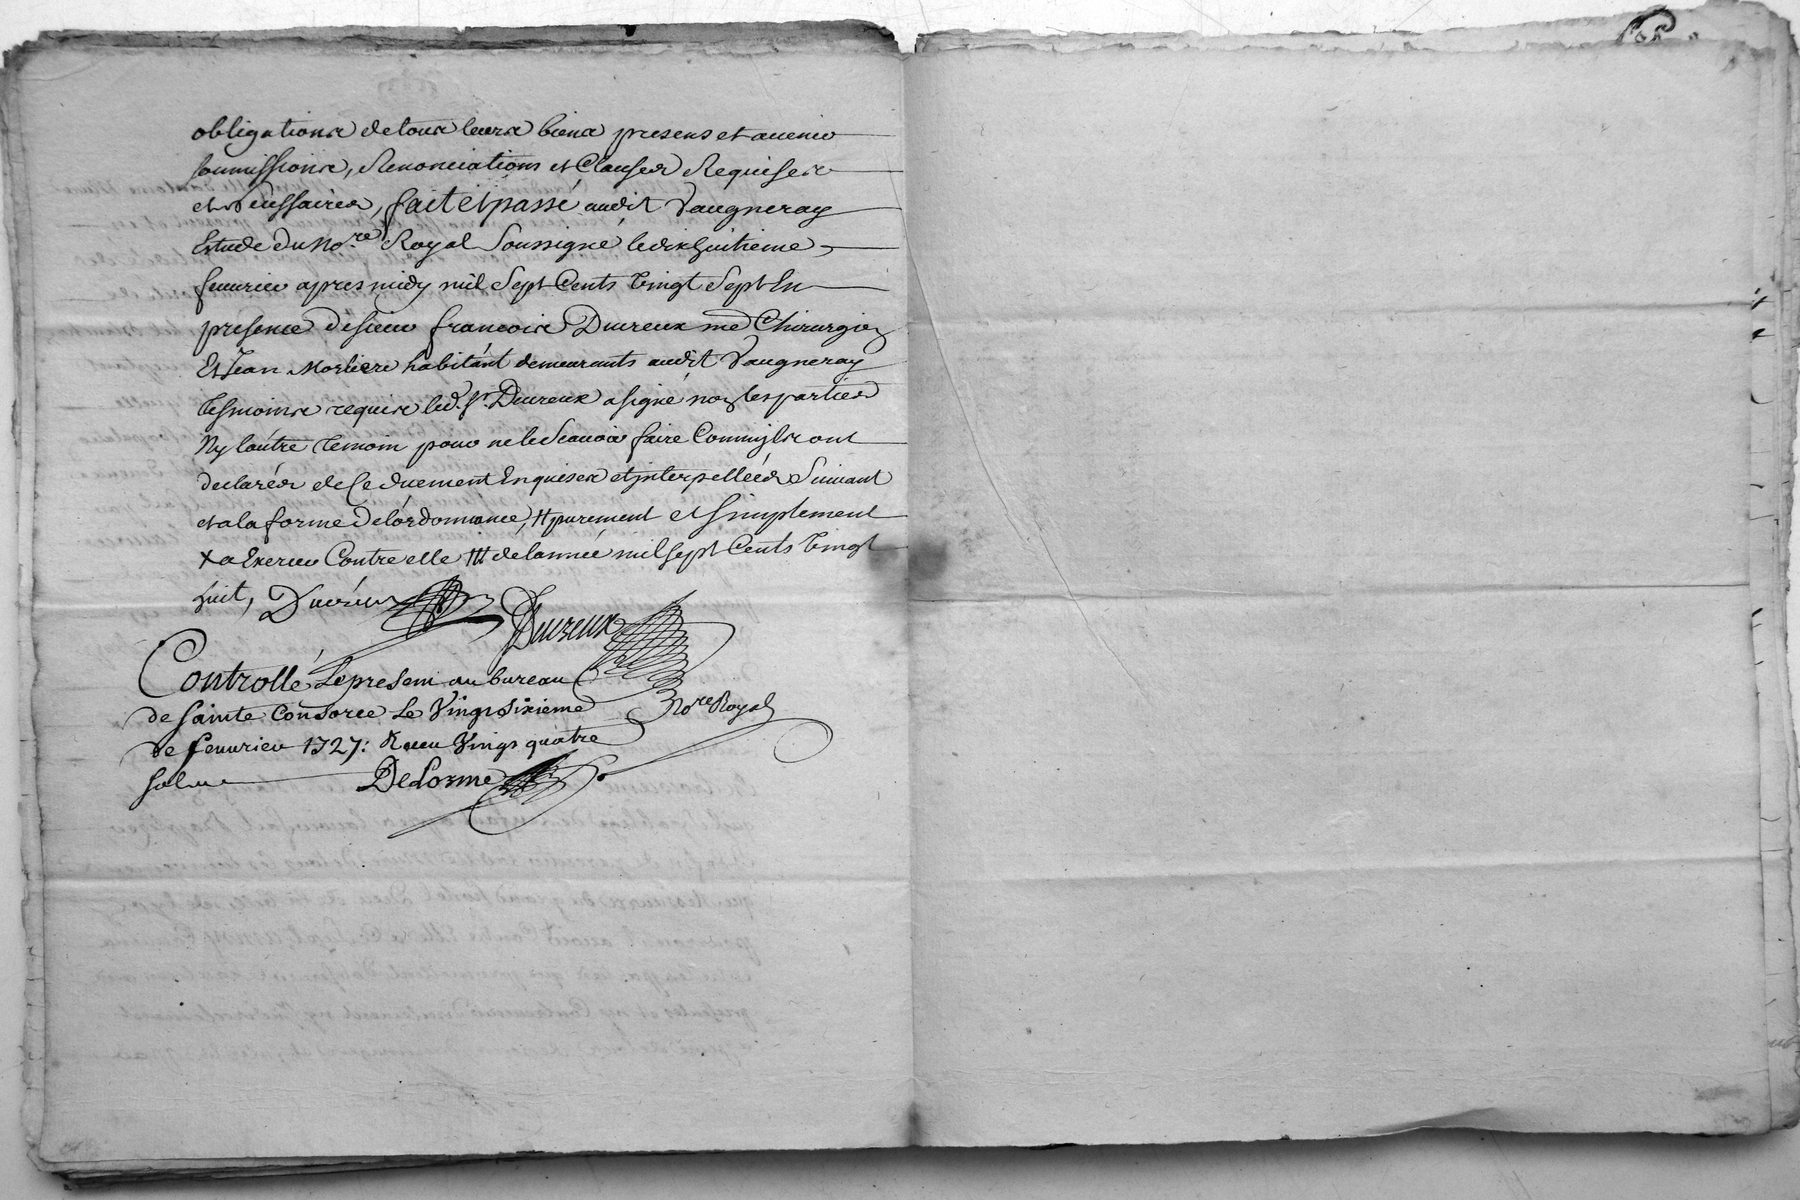 obligations de tous leurs biens presens et avenir
soumissions, Renonciations et Clauses Requises
et necessaires, fait et passé audit Vaugneray
Estude du No.re Royal Soussigné le dix huitieme
feuvrier apres midy mil Sept Cents Vingt Sept En
presence de sieur françois Ducreux me Chirurgien
Et Jean Morliere habitant demeurants audit Vaugneray
Tesmoins requis led. Sr. Ducreux a signé non les parties
Ny lautre Temoin pour ne le Scavoir faire Comm'ils ont
declarés de Ce duement Enquises et interpellées Suivant
et a la forme de lordonnance, # purement et Simplement
x a Exercer Contre elle ## de lannée mil sept Cents Vingt
huit, Ducreux Ducreux
No.re Royal
Controllé Le present au bureau
de Sainte Consorce Le Vingt sixieme
de feuvrier 1727: Receu Vingt quatre
sols DeLorme